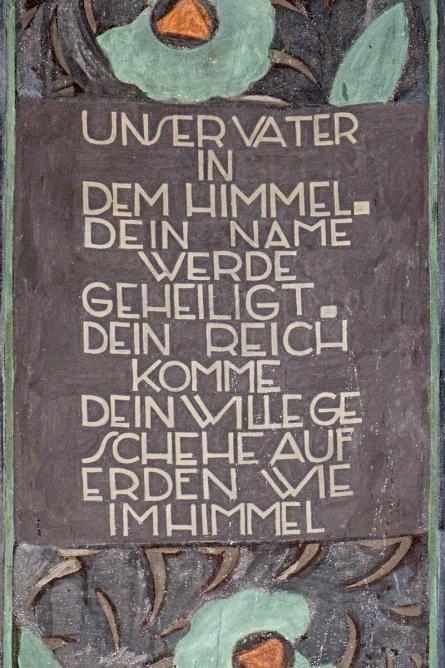 UNSER VATER
IN
DEM HIMMEL.
DEIN NAME
WERDE
GEHEILIGT.
DEIN REICH
KOMME
DEIN WILLE GE
SCHEHE AUF
ERDEN WIE
IM HIMMEL